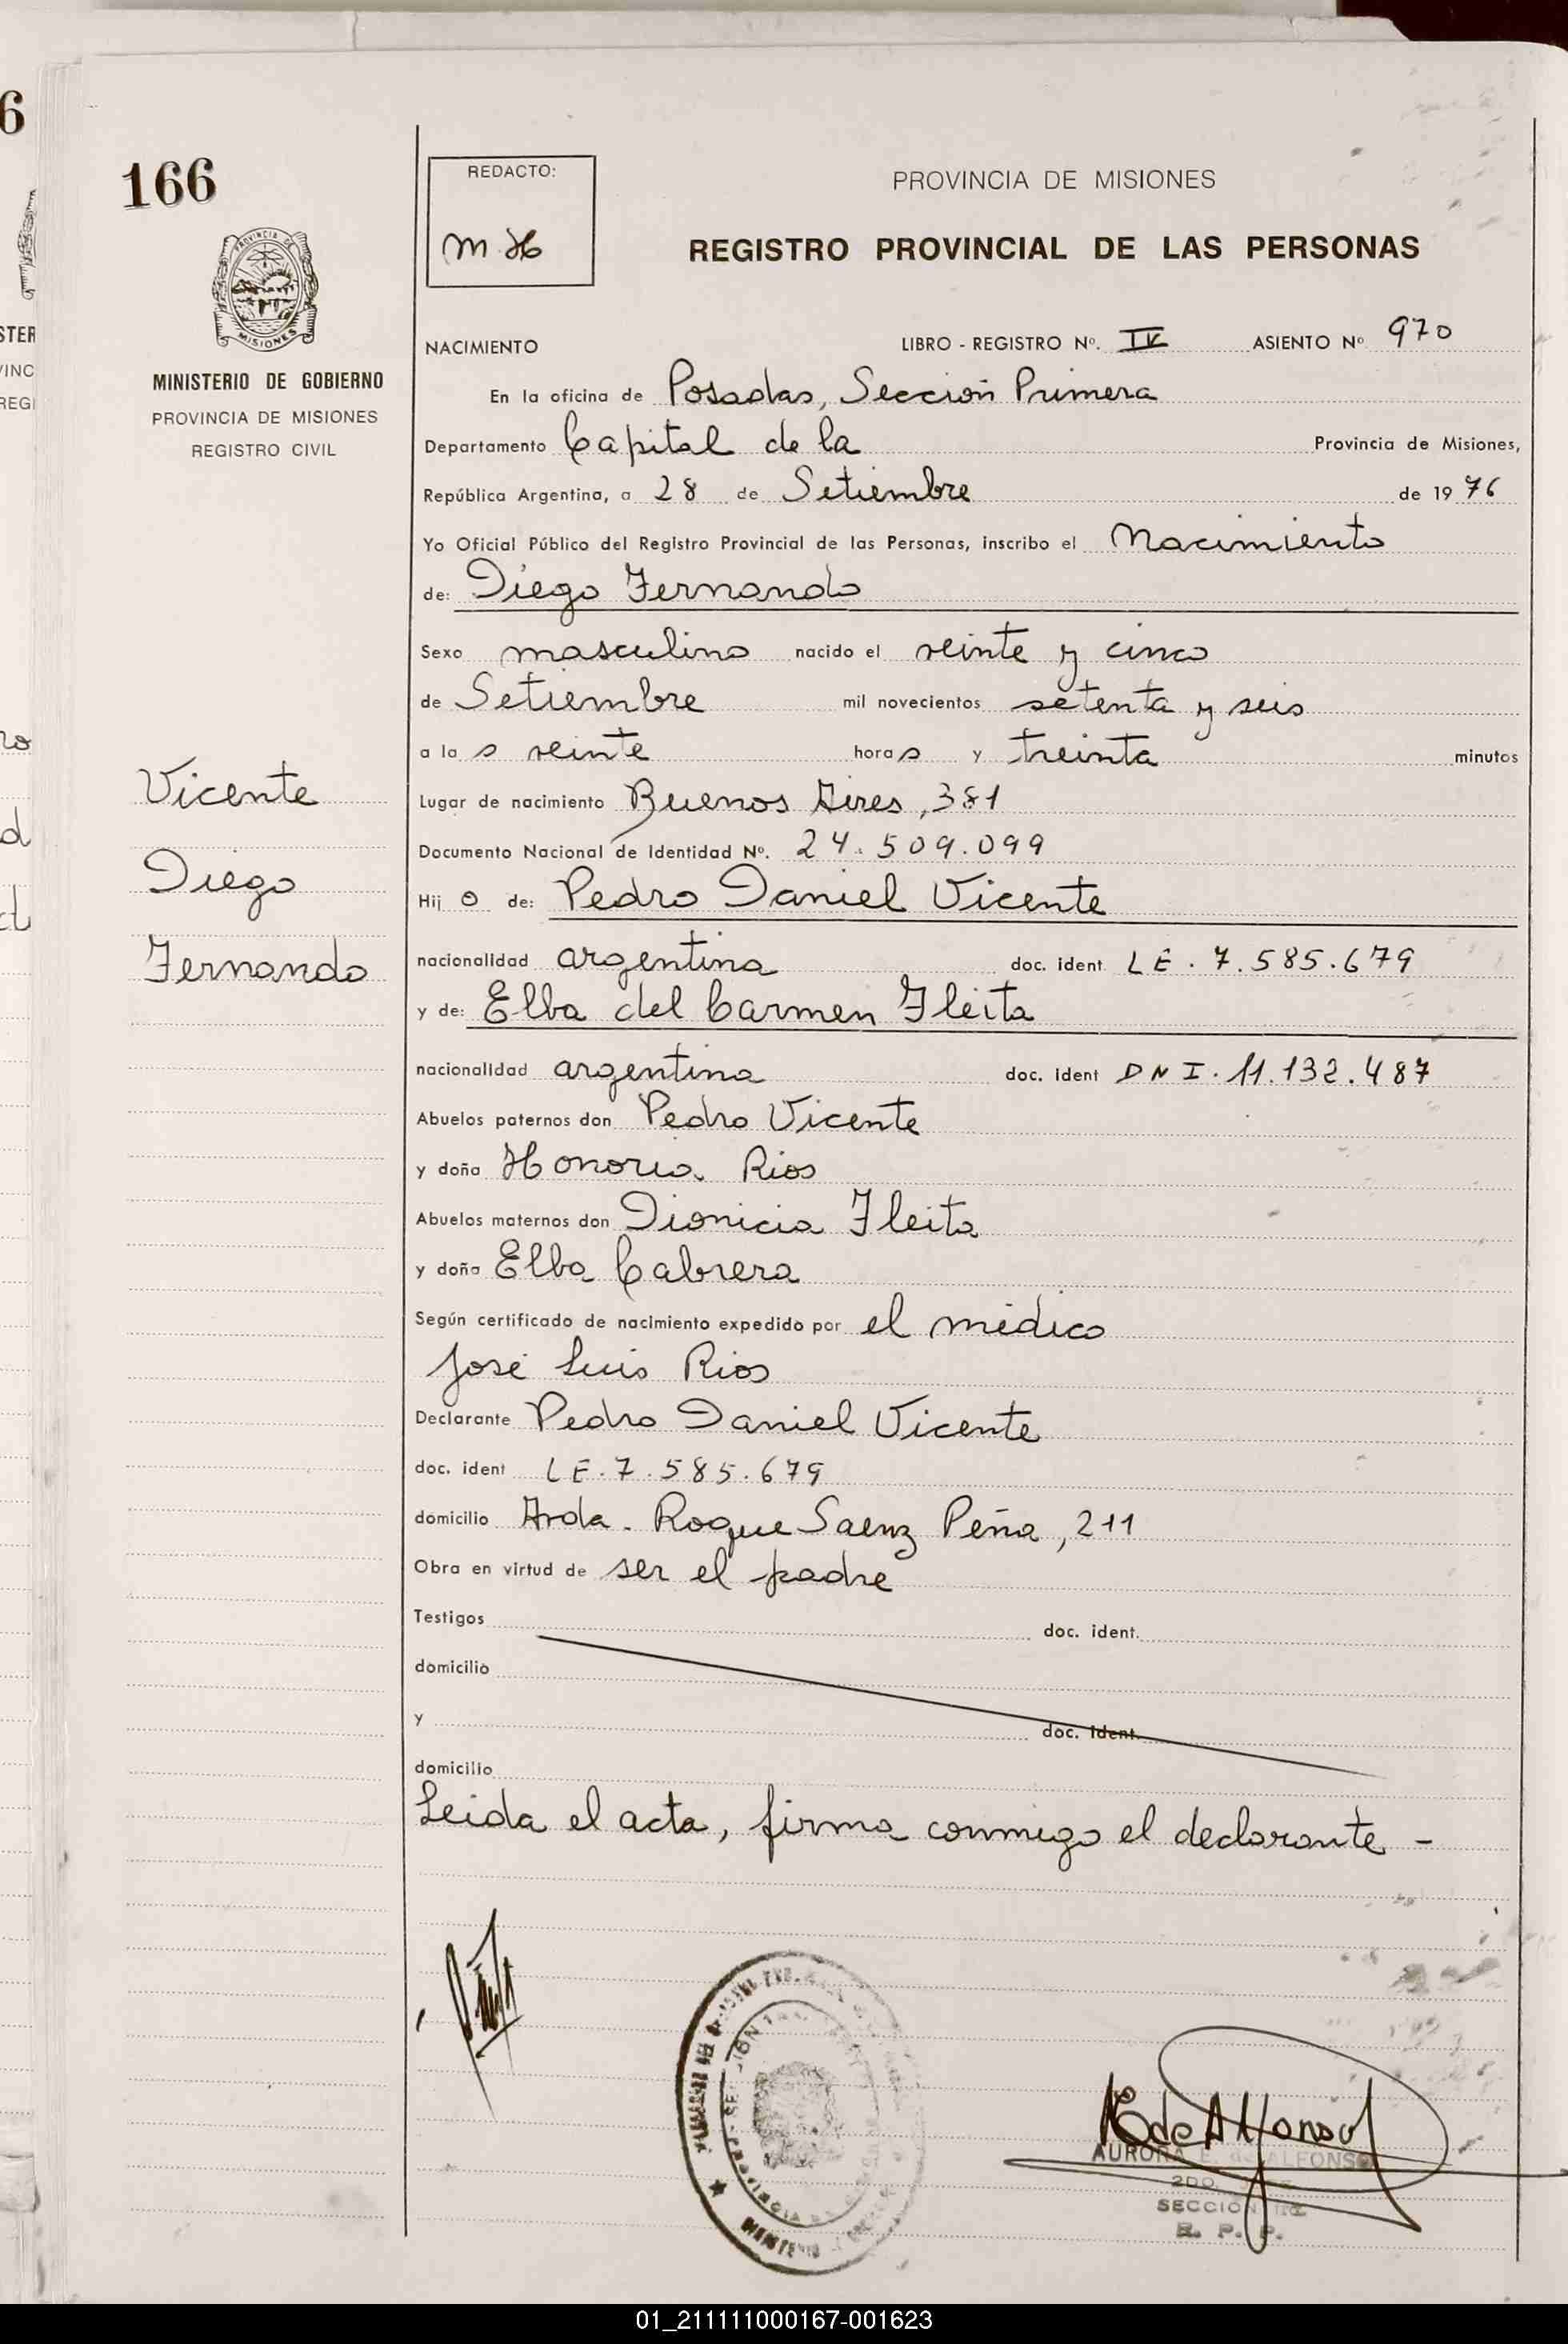 6
166
REDACTO:
M. H
PROVINCIA DE MISIONES
REGISTRO PROVINCIAL DE LAS PERSONAS
PROVINCIA DE
MISIONES
MINISTERIO DE GOBIERNO
PROVINCIA DE MISIONES
REGISTRO CIVIL
NACIMIENTO LIBRO - REGISTRO Nº. IV ASIENTO Nº 970
En la oficina de Posadas, Sección Primera
Departamento Capital de la Provincia de Misiones,
República Argentina, a 28 de Setiembre de 1976
Yo Oficial Público del Registro Provincial de las Personas, inscribo el Nacimiento
de: Diego Fernando
Sexo masculino nacido el veinte y cinco
de Setiembre mil novecientos setenta y seis
a las veinte horas y treinta minutos
Vicente
Diego
Fernando
Lugar de nacimiento Buenos Aires, 381
Documento Nacional de Identidad Nº. 24.509.099
Hijo de: Pedro Daniel Vicente
nacionalidad argentina doc. ident LE. 7.585.679
y de: Elba del Carmen Fleita
nacionalidad argentina doc. ident DNI. 11.132.487
Abuelos paternos don Pedro Vicente
y doña Honoria Rios
Abuelos maternos don Dionicia Fleita
y doña Elba Cabrera
Según certificado de nacimiento expedido por el médico
José Luis Rios
Declarante Pedro Daniel Vicente
doc. ident LE. 7.585.679
domicilio Avda. Roque Saenz Peña, 211
Obra en virtud de ser el padre
Testigos doc. ident.
domicilio
y doc. ident.
domicilio
Leida el acta, firma conmigo el declarante -
AURORA E. de ALFONSO
SECCION
R. P. P.
01_211111000167-001623